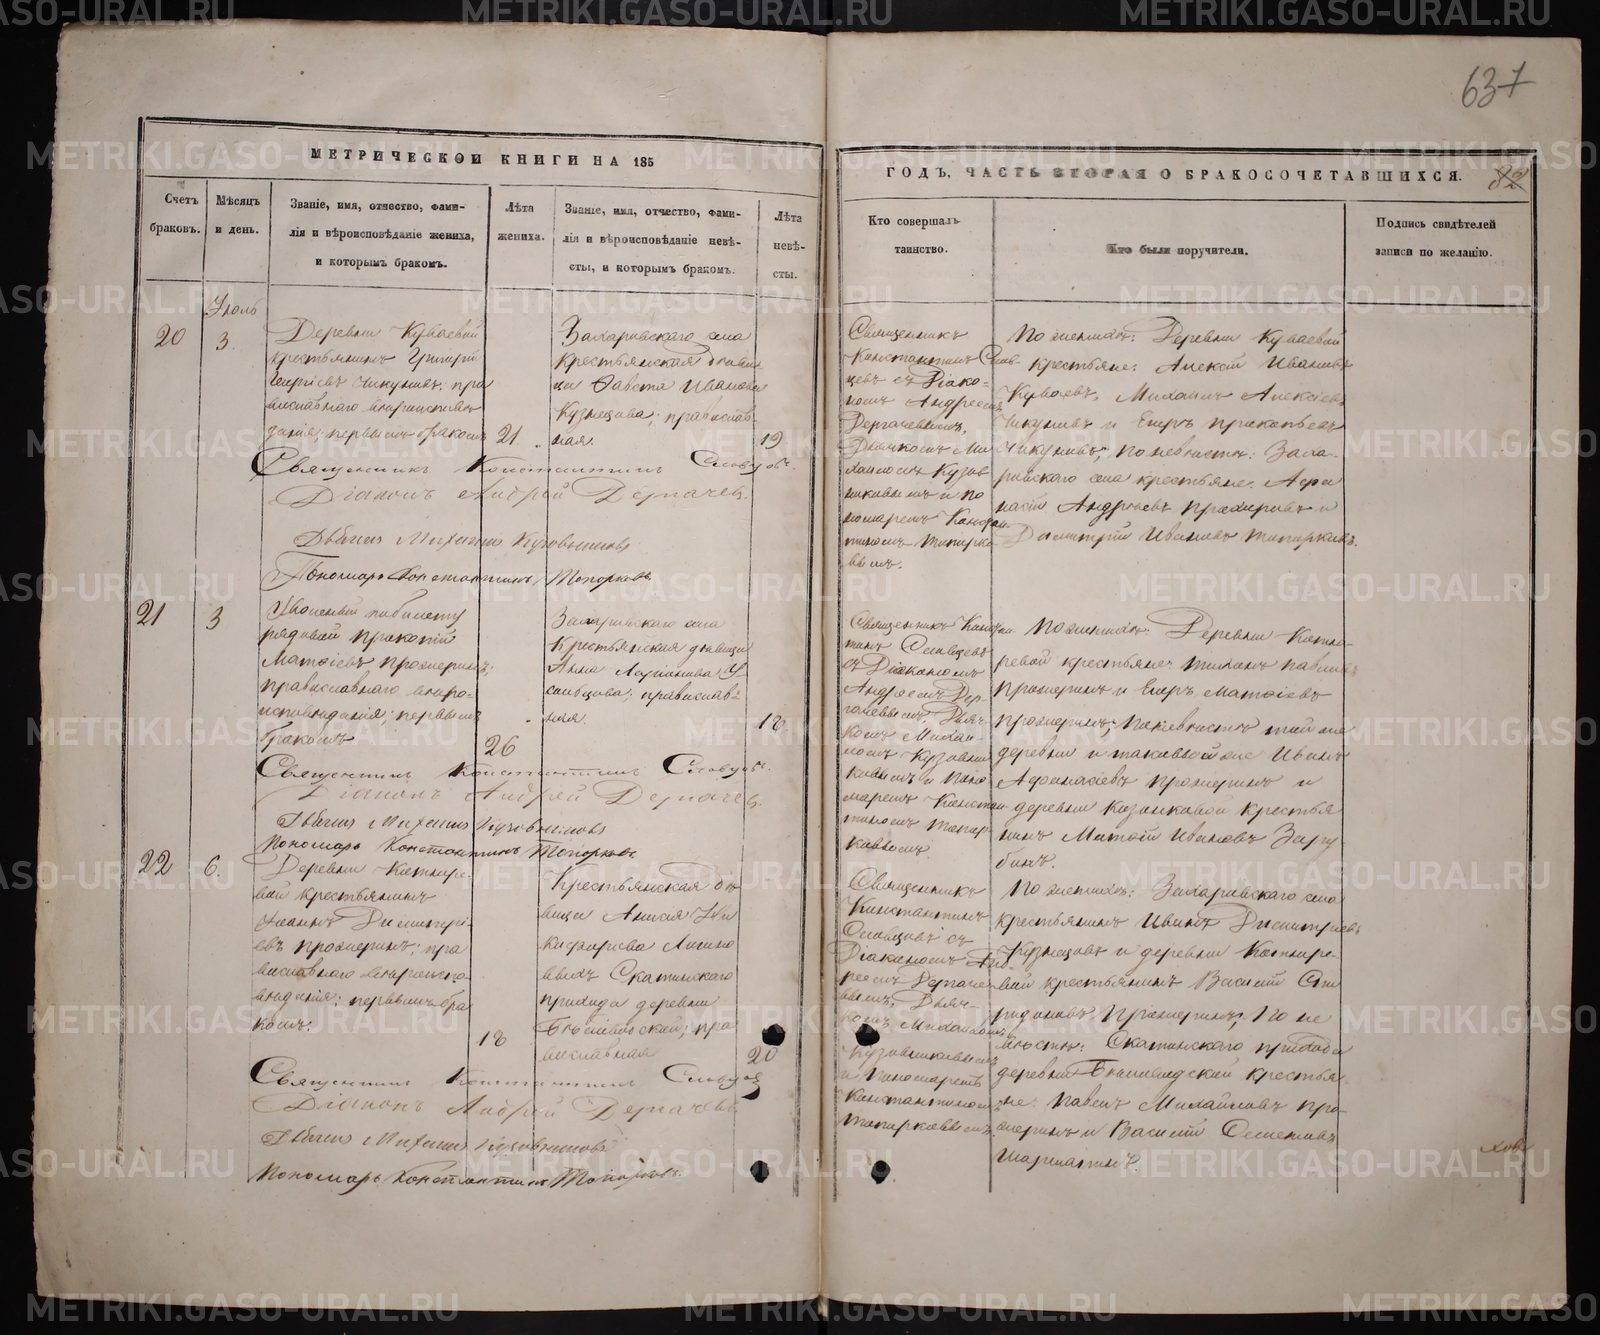 637
МЕТРИЧЕСКОЙ КНИГИ НА 185
Счетъ браковъ.
Мѣсяцъ и день.
Званіе, имя, отчество, фами-
лія и вѣроисповѣданіе жениха,
и которымъ бракомъ.
Лѣта жениха.
Званіе, имя, отчество, фами-
лія и вѣроисповѣданіе невѣ-
сты, и которымъ бракомъ.
Лѣта невѣ-
сты.
ГОДЪ, ЧАСТЬ ВТОРАЯ О БРАКОСОЧЕТАВШИХСЯ.
82
Кто совершалъ
таинство.
Кто были поручители.
Подпись свидѣтелей
записи по желанію.
Іюль
20
3.
Деревни Куваевой
крестьянинъ Григорій
Георгіевъ Чикуновъ; пра
вославнаго вѣроисповѣ
данія; первымъ бракомъ
21.
Захаровскаго села
крестьянская дѣви
ца Ѳавста Иванова
Кузнецова; православ-
ная.
19
Священникъ
Константинъ Слов-
цевъ съ Діако-
номъ Андреемъ
Дергачевымъ,
Дьячкомъ Ми
хаиломъ Кузов
никовымъ и по
номаремъ Констан-
тиномъ Топорко-
вымъ.
По женихѣ: Деревни Куваевой
крестьяне: Алексій Ивановъ
Куваевъ, Михаилъ Алексѣевъ
Чикуновъ и Егоръ Прокопьевъ
Чикуновъ; по невѣстѣ: Заха-
ровскаго села крестьяне: Афа
насій Андреевъ Прохоровъ и
Димитрій Ивановъ Топорковъ.
Священникъ Константинъ Словцовъ.
Діаконъ Андрей Дергачев.
Дьячекъ Михаилъ Кузовниковъ
Пономарь Константинъ Топорковъ
21
3
рядовой Прокопій
Матѳіевъ Прожеринъ;
православнаго вѣро-
исповѣданія; первымъ
бракомъ
26
Захаровскаго села
Крестьянская дѣвица
Анна
православ-
ная.
18
Священникъ Констан-
тинъ Словцевъ
съ Діакономъ
Андреемъ Дер-
гачевымъ, Дьяч-
комъ Михаи-
ломъ Кузовни
ковымъ и Поно-
маремъ Констан-
тиномъ Топор-
ковымъ.
По женихѣ: Деревни
крестьяне: Павловъ
Прожеринъ и Егоръ Матѳіевъ
Прожеринъ; по невѣстѣ той же
деревни и таковой же Иванъ
Афонасіевъ Прожеринъ и
деревни Казаковой крестья
нинъ Матѳій Ивановъ Зару
бинъ.
Священникъ Константинъ Словцовъ.
Діаконъ Андрей Дергачев.
Дьячекъ Михаилъ Кузовниковъ
Пономарь Константинъ Топорковъ.
22
6.
Деревни
вой крестьянинъ
Іоаннъ Димитрі-
евъ Прожеринъ; пра
вославнаго вѣроиспо-
вѣданія; первымъ бра
комъ.
18
Крестьянская дѣ
вица Анисія Ни
Скатинскаго
прихода деревни
пра
вославная
20
Священникъ
Константинъ
Словцовъ съ
Діакономъ Анд-
реемъ Дергаче-
вымъ, Дьяч-
комъ Михаиломъ
Кузовниковымъ
и Пономаремъ
Константиномъ
Топорковымъ.
По женихѣ: Захаровскаго села
крестьянинъ Иванъ Димитріевъ
Кузнецовъ и деревни
вой крестьянинъ Василій Спи
ридоновъ Прожеринъ; По не
вѣстѣ: Скатинскаго прихода
деревни крестья
не: Павелъ Михайловъ Про-
жеринъ и Василій Семеновъ
Священникъ Константинъ Словцов
Діаконъ Андрей Дергачевъ
Дьячекъ Михаилъ Кузовниковъ
Пономарь Константинъ Топорковъ.
METRIKI.GASO-URAL.RU